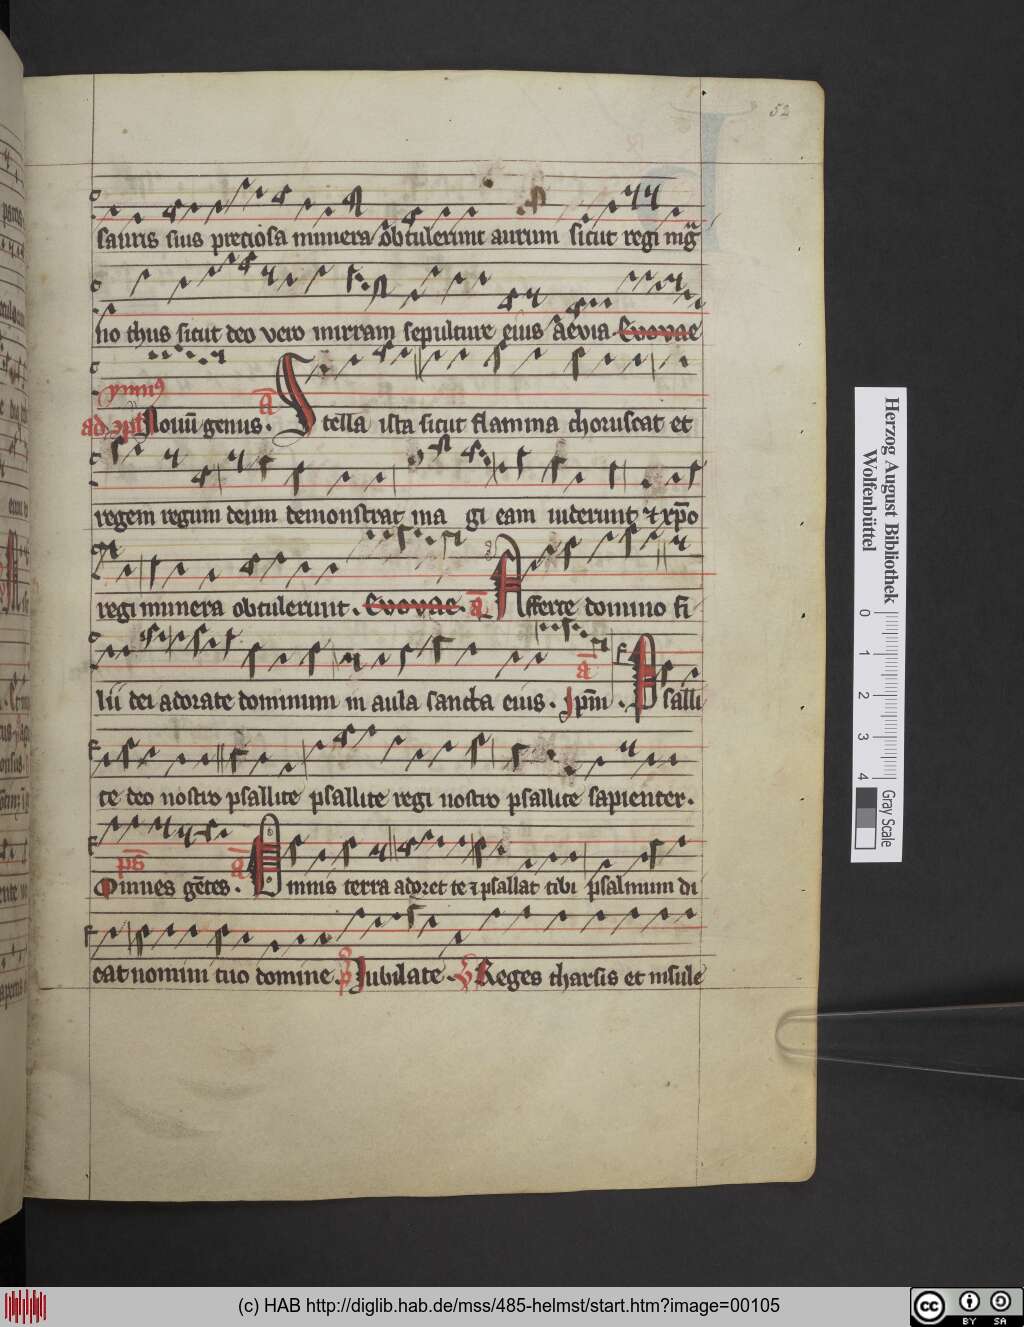 52
sauris suis preciosa munera obtulerunt aurum sicut regi mg̅
no thus sicut deo vero mirram sepulture eius aevia Evovae
ymnꝯ
ad ↄpl̅ Nouu̅ genus . a̅ Stella ista sicut flamma choruscat et
regem regum deum demonstrat magi eam uiderunt ⁊ xp̅o
regi munera obtulerunt . Evovae . a̅ Afferte domino fi
lii dei adorate dominum in aula sancta eius . Ip̅m . a̅ Psalli
te deo nostro psallite psallite regi nostro psallite sapienter .
ps̅ Omnes ge̅tes . a̅ Omnis terra adoret te ⁊ psallat tibi psalmum di
cat nomini tuo domine . Iubilate . V Reges tharsis et insule
Herzog August Bibliothek
Wolfenbüttel
0 1 2 3 4
Gray Scale
(c) HAB http://diglib.hab.de/mss/485-helmst/start.htm?image=00105
cc BY SA